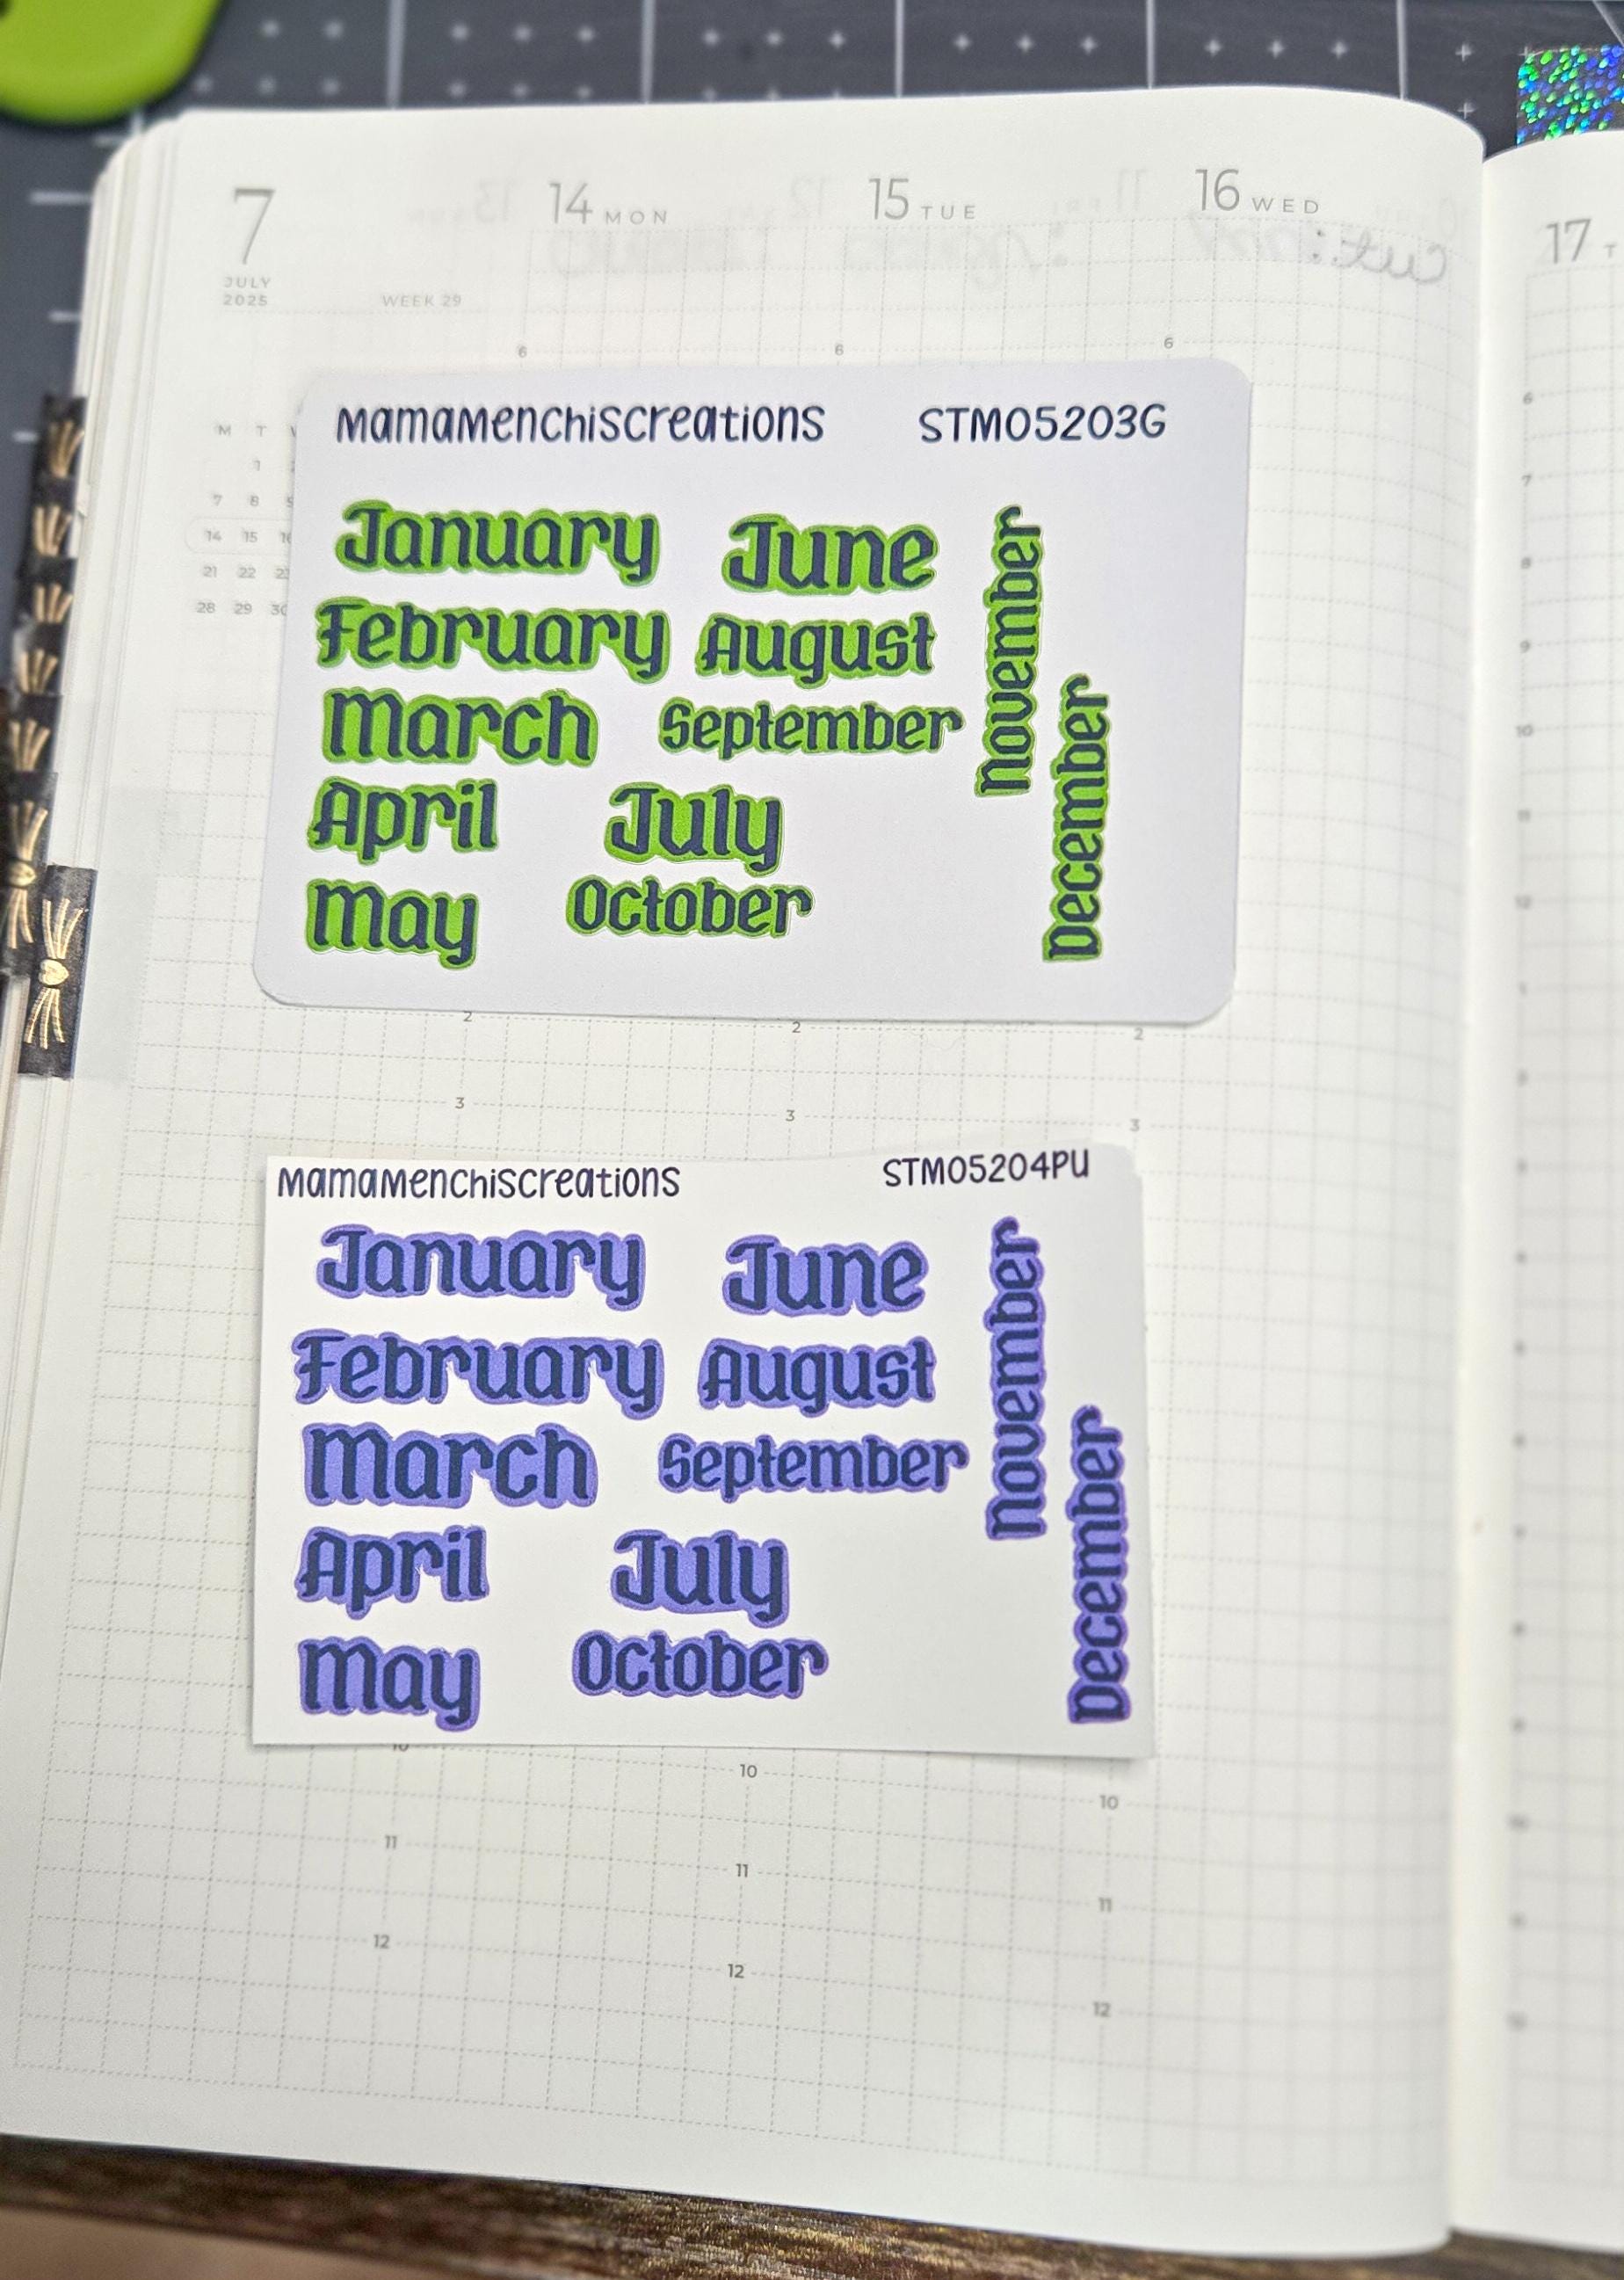 7 14 MON 15 TUE 16 WED
JULY
2025 WEEK 29
17 T
6 6 6
M T
1
7 8 9
14 15 16
21 22 23
28 29 30
MamaMenchiscreations STM05203G
January June
February August
March September
April July
May October
November
December
2 2 2
3 3 3
MamaMenchiscreations STM05204PU
January June
February August
March September
April July
May October
November
December
10 10 10
11 11 11
12 12 12
6
7
8
9
10
11
12